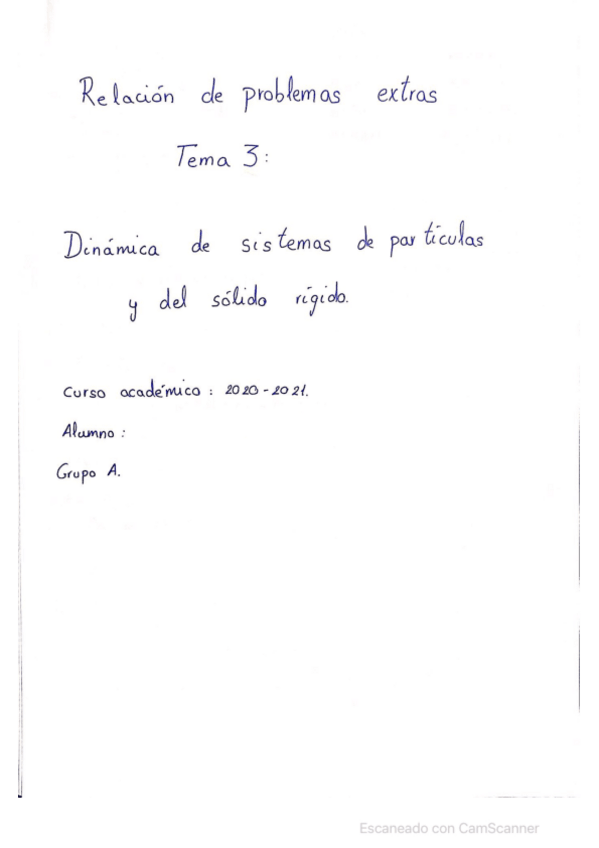 Relación de problemas extras
Tema 3:
Dinámica de sistemas de partículas
y del sólido rígido.
Curso académico : 2020-2021.
Alumno :
Grupo A.
Escaneado con CamScanner